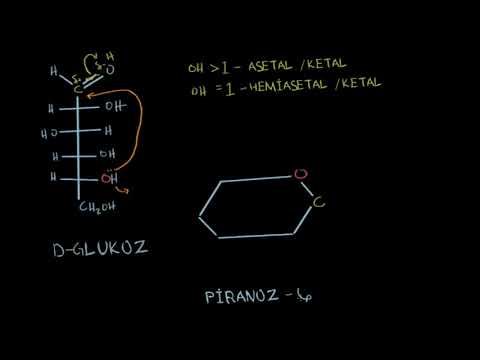 H O H
C
H OH
HO H
H OH
H OH
CH₂OH
D-GLUKOZ
OH > 1 - ASETAL / KETAL
OH = 1 - HEMİASETAL / KETAL
O
C
PİRANOZ - 6